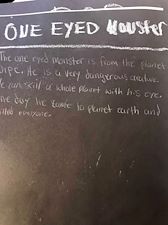 ONE EYED Monster
The one eyed monster is from the planet
. He is a very dangerous creature.
He can kill a whole planet with his eye.
One day he came to planet earth and
killed everyone.